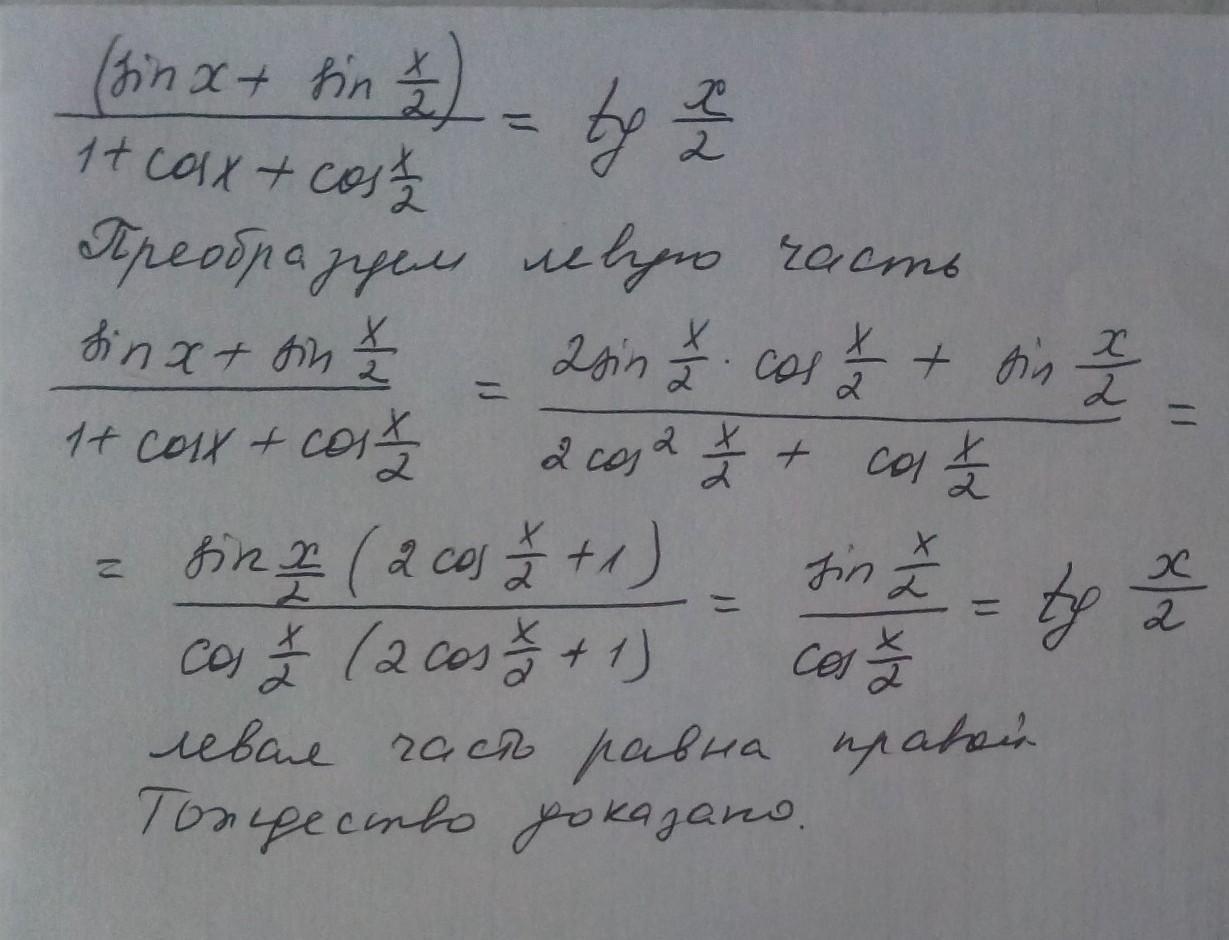 (sin x + sin x/2) / (1 + cos x + cos x/2) = tg x/2
Преобразуем левую часть
(sin x + sin x/2) / (1 + cos x + cos x/2) = (2 sin x/2 · cos x/2 + sin x/2) / (2 cos² x/2 + cos x/2) =
= (sin x/2 (2 cos x/2 + 1)) / (cos x/2 (2 cos x/2 + 1)) = (sin x/2) / (cos x/2) = tg x/2
левая часть равна правой
Тождество доказано.